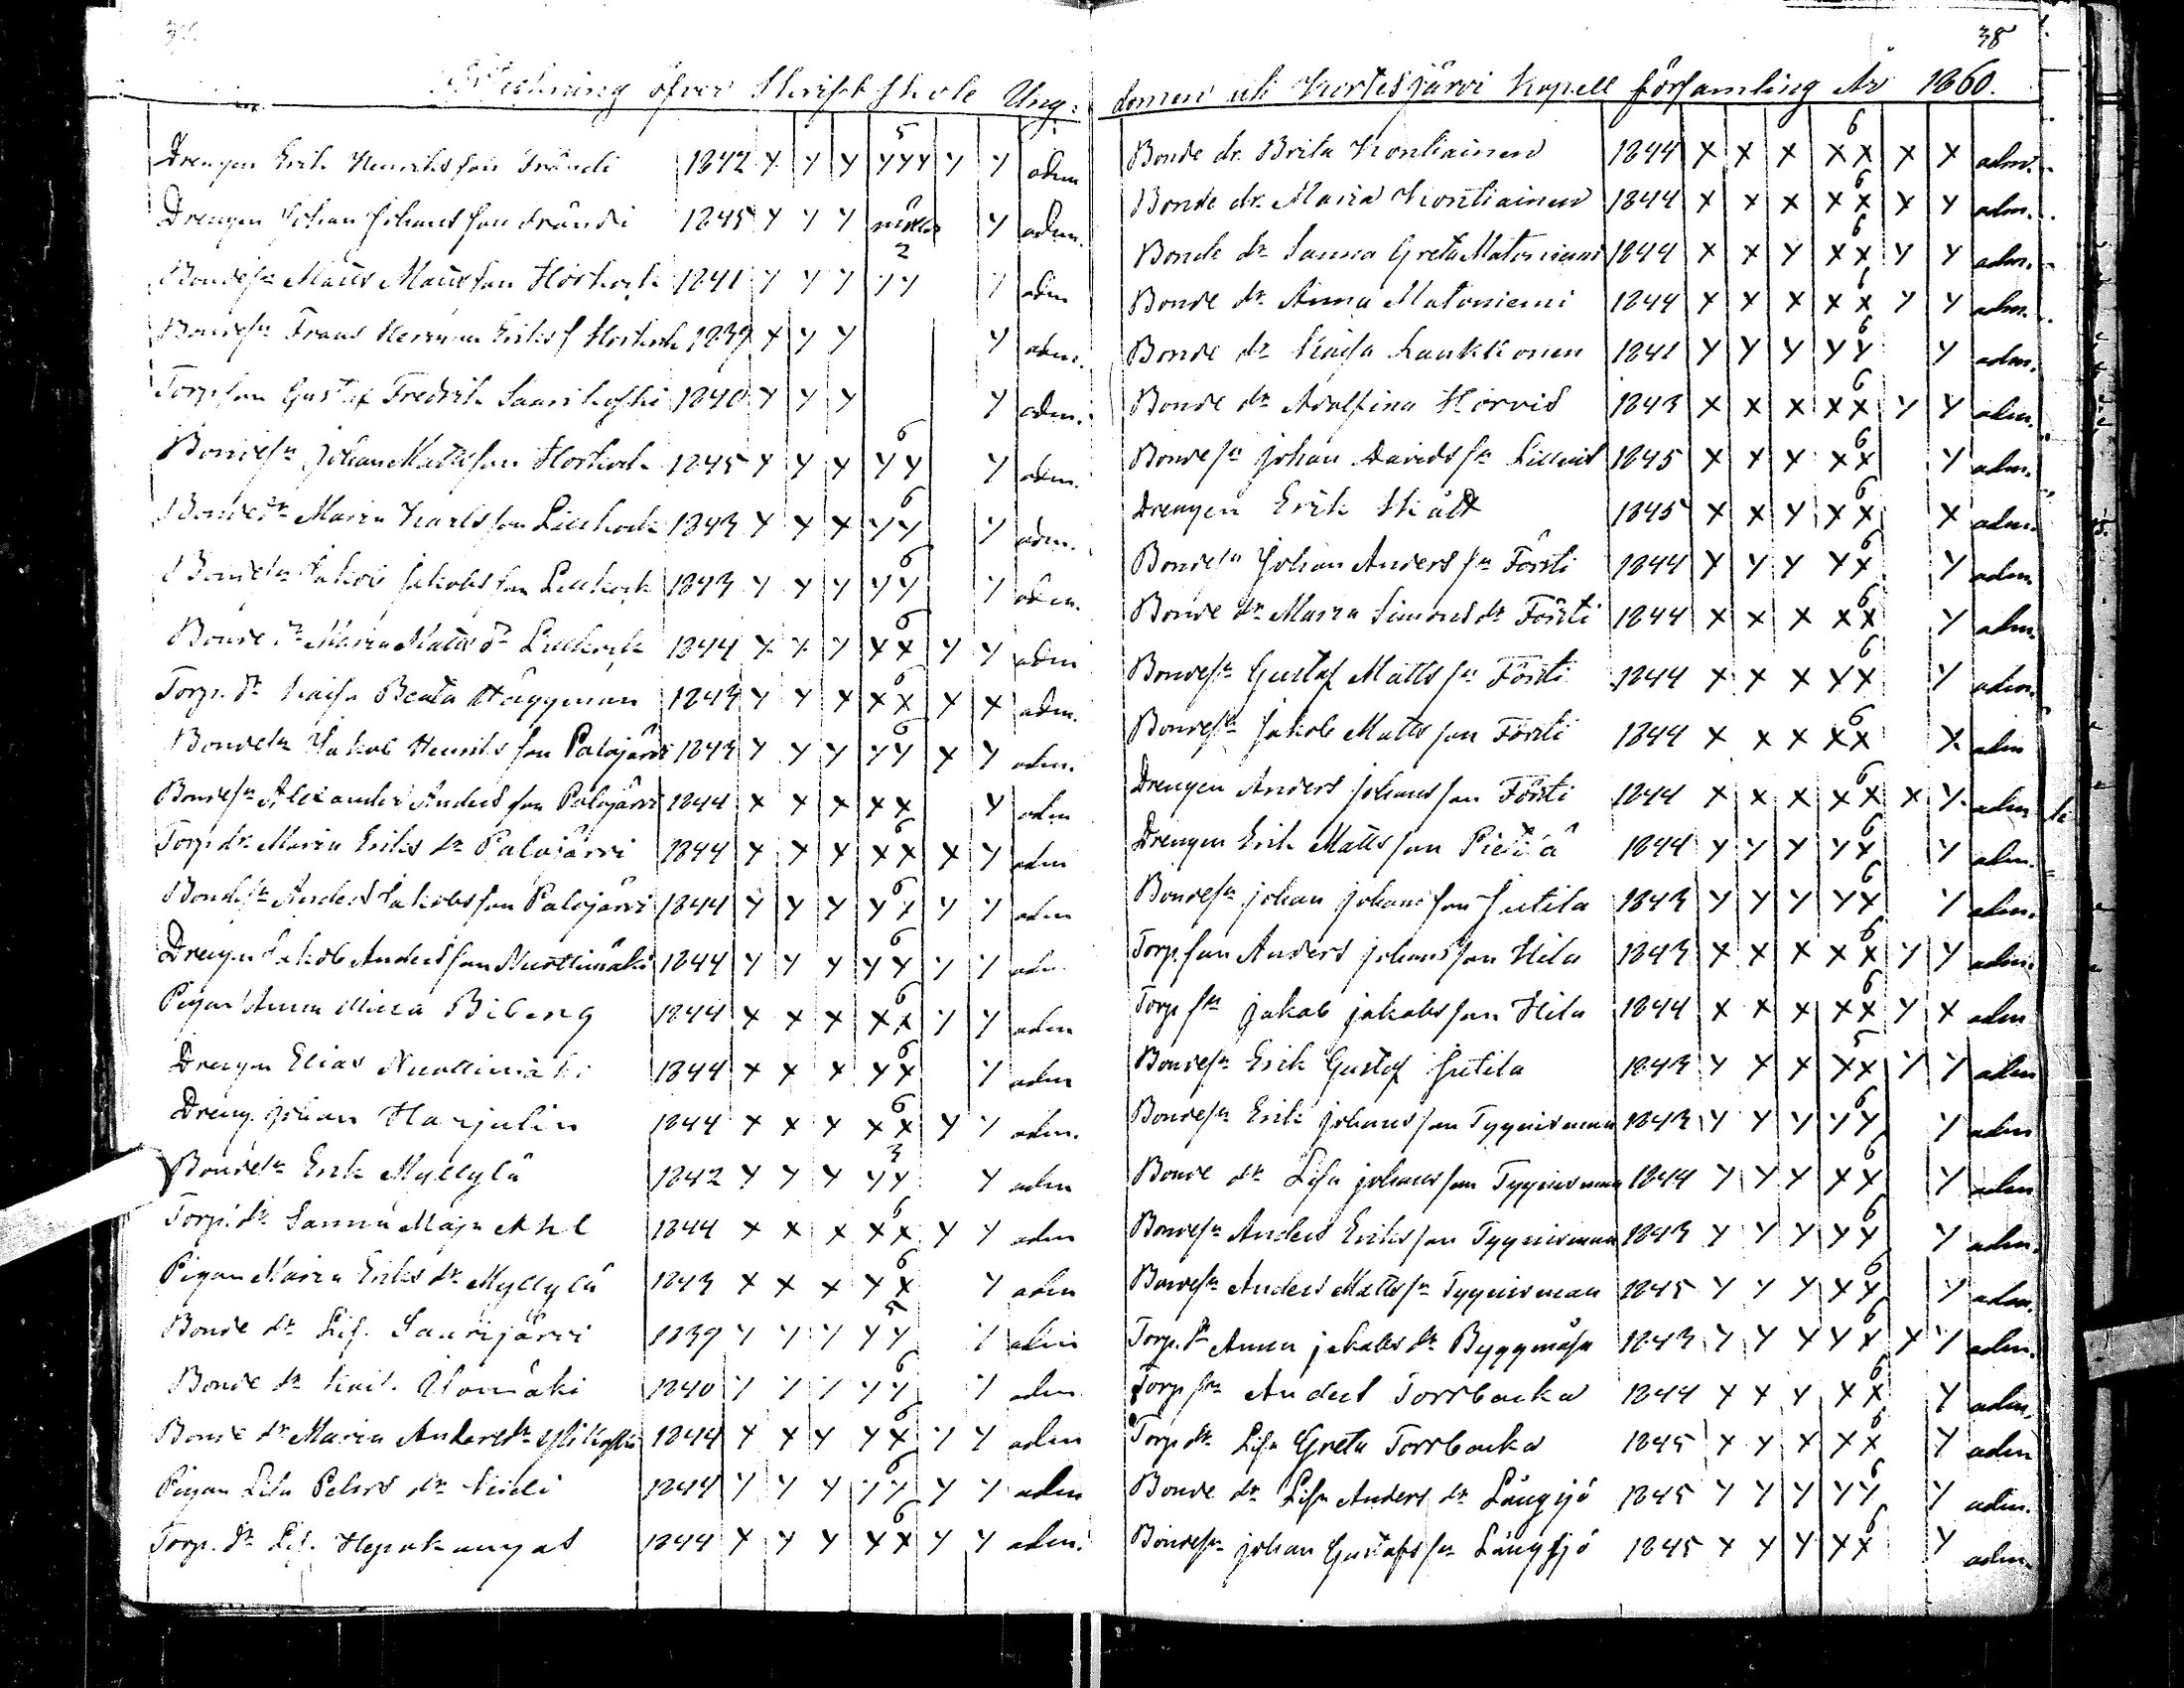 38
öfver Skriftskole Ung:
domen uti Kortesjärvi Kapell församling År 1860.
Drengen Erik Henriksson Trändi 1842 x y y 5 yyy y y adm
Drengen Johan Johansson Trändi 1845 y y y y adm.
Bondesn Matts Mattsson Horhork 1841 y y y 2 yy y adm
Bondesn Frans Herman Eriks s Horhork 1839 x y y y adm.
Torpson Gustaf Fredrik Saarikoski 1840 y y y y adm.
Bondesn Johan Mattsson Horhork 1845 y y y 6 yy y adm.
Bondedr Maria Karlsson Lillhork 1843 y x x 6 yy y adm.
Bondesn Jakob Jakobsson Lillhork 1843 y y y 6 yy y adm.
Bonde dr Maria Matts dr Lillhork 1844 y y y 6 xx y y adm
Torp. dr Kajsa Beata Häggman 1843 y y x 6 xx x x adm.
Bondesn Jakob Henriksson Palojärvi 1843 y y y 6 yy x y adm.
Bondesn Alexander Andersson Palojärvi 1844 x x x xx y adm
Torp dr Maria Eriks dr Palojärvi 1844 x x x 6 xx x y adm
Bondesn Anders Jakobsson Palojärvi 1844 y y y 6 yx y y adm
Drengen Jakob Andersson Nuottimäki 1844 y y y 6 yy y y adm
Pigan Anna 1844 x x x 6 xx y y adm
Drengen Elias Nuottimäki 1844 x x x 6 yx y adm
Dreng. Johan Harjulin 1844 x x x 6 xx y y adm.
Bondesn Erik Myllylä 1842 y y y 3 yy y adm
Torp. dr Sanna Maja Ahl 1844 x x x 6 xx y y adm
Pigan Maria Eriks dr Myllylä 1843 x x x 6 yx y adm
Bonde dr Lis. Saarijärvi 1839 y y y 5 yy y adm
Bonde dr Kais. Ulomäki 1840 y y y 6 yy y adm
Bonde dr Maria Anders dr Ylikoski 1844 y x y 6 yx y y adm
Pigan Lisa Peters dr 1844 y y y 6 yy y y adm
Torp. dr Lis. Hepokangas 1844 x y y 6 xx y y adm.
Bonde dr. Brita Kontiainen 1844 x x x 6 xx x x adm.
Bonde dr. Maria Kontiainen 1844 x x x 6 xx x y adm.
Bonde dr Sanna Greta Matoniemi 1844 x x y 6 xx y y adm.
Bonde dr Anna Matoniemi 1844 x x x 6 xx y y adm.
Bonde dr Kajsa Laukkonen 1841 y y y 6 yy y adm.
Bonde dr Adolfina Horvid 1843 x x x 6 xx y y adm.
Bondesn Johan Davids sn 1845 x x x 6 xx y adm.
Drengen Erik Skält 1845 x x y 6 xx x adm.
Bondesn Johan Anders sn Försti 1844 y y y 6 yx y adm
Bonde dr Maria Simons dr Försti 1844 x x x 6 xx y adm.
Bondesn Gustaf Matts sn Försti 1844 x x x 6 yx y adm.
Bondesn Jakob Mattsson Försti 1844 x x x 6 xx x. adm
Drengen Anders Johansson Försti 1844 x x x 6 xx x y. adm
Drengen Erik Mattsson Pietilä 1844 y y y 6 yx y adm.
Bondesn Johan Johansson Jutila 1843 y y y 6 yx y adm.
Torpson Anders Johansson Hila 1843 x x x 6 xx y y adm.
Torp sn Jakob Jakobsson Hila 1844 x x x 6 xx y x adm
Bondesn Erik Gustaf Jutila 1843 y x x 5 xx y y adm
Bondesn Erik Johansson Tyynisman 1843 y y y 6 yy y adm
Bonde dr Lisa Johansson Tyynisman 1844 y y y 6 xx y adm
Bondesn Anders Eriksson Tyynisman 1843 y y y 6 yy y adm.
Bondesn Anders Matts sn Tyynisman 1845 y y y 6 xy y adm.
Torp. dr Anna Jakobs dr Byggmäsa 1843 y y x 6 yx x y adm.
Torp sn Anders Torrbacka 1844 x x y 6 xx y adm.
Torp dr Lisa Greta Torrbacka 1845 x y x 6 xx y adm
Bonde dr Lisa Anders dr Långsjö 1845 y y y 6 yy y adm.
Bondesn Johan Gustafs sn Långsjö 1845 x y y 6 xx y adm.